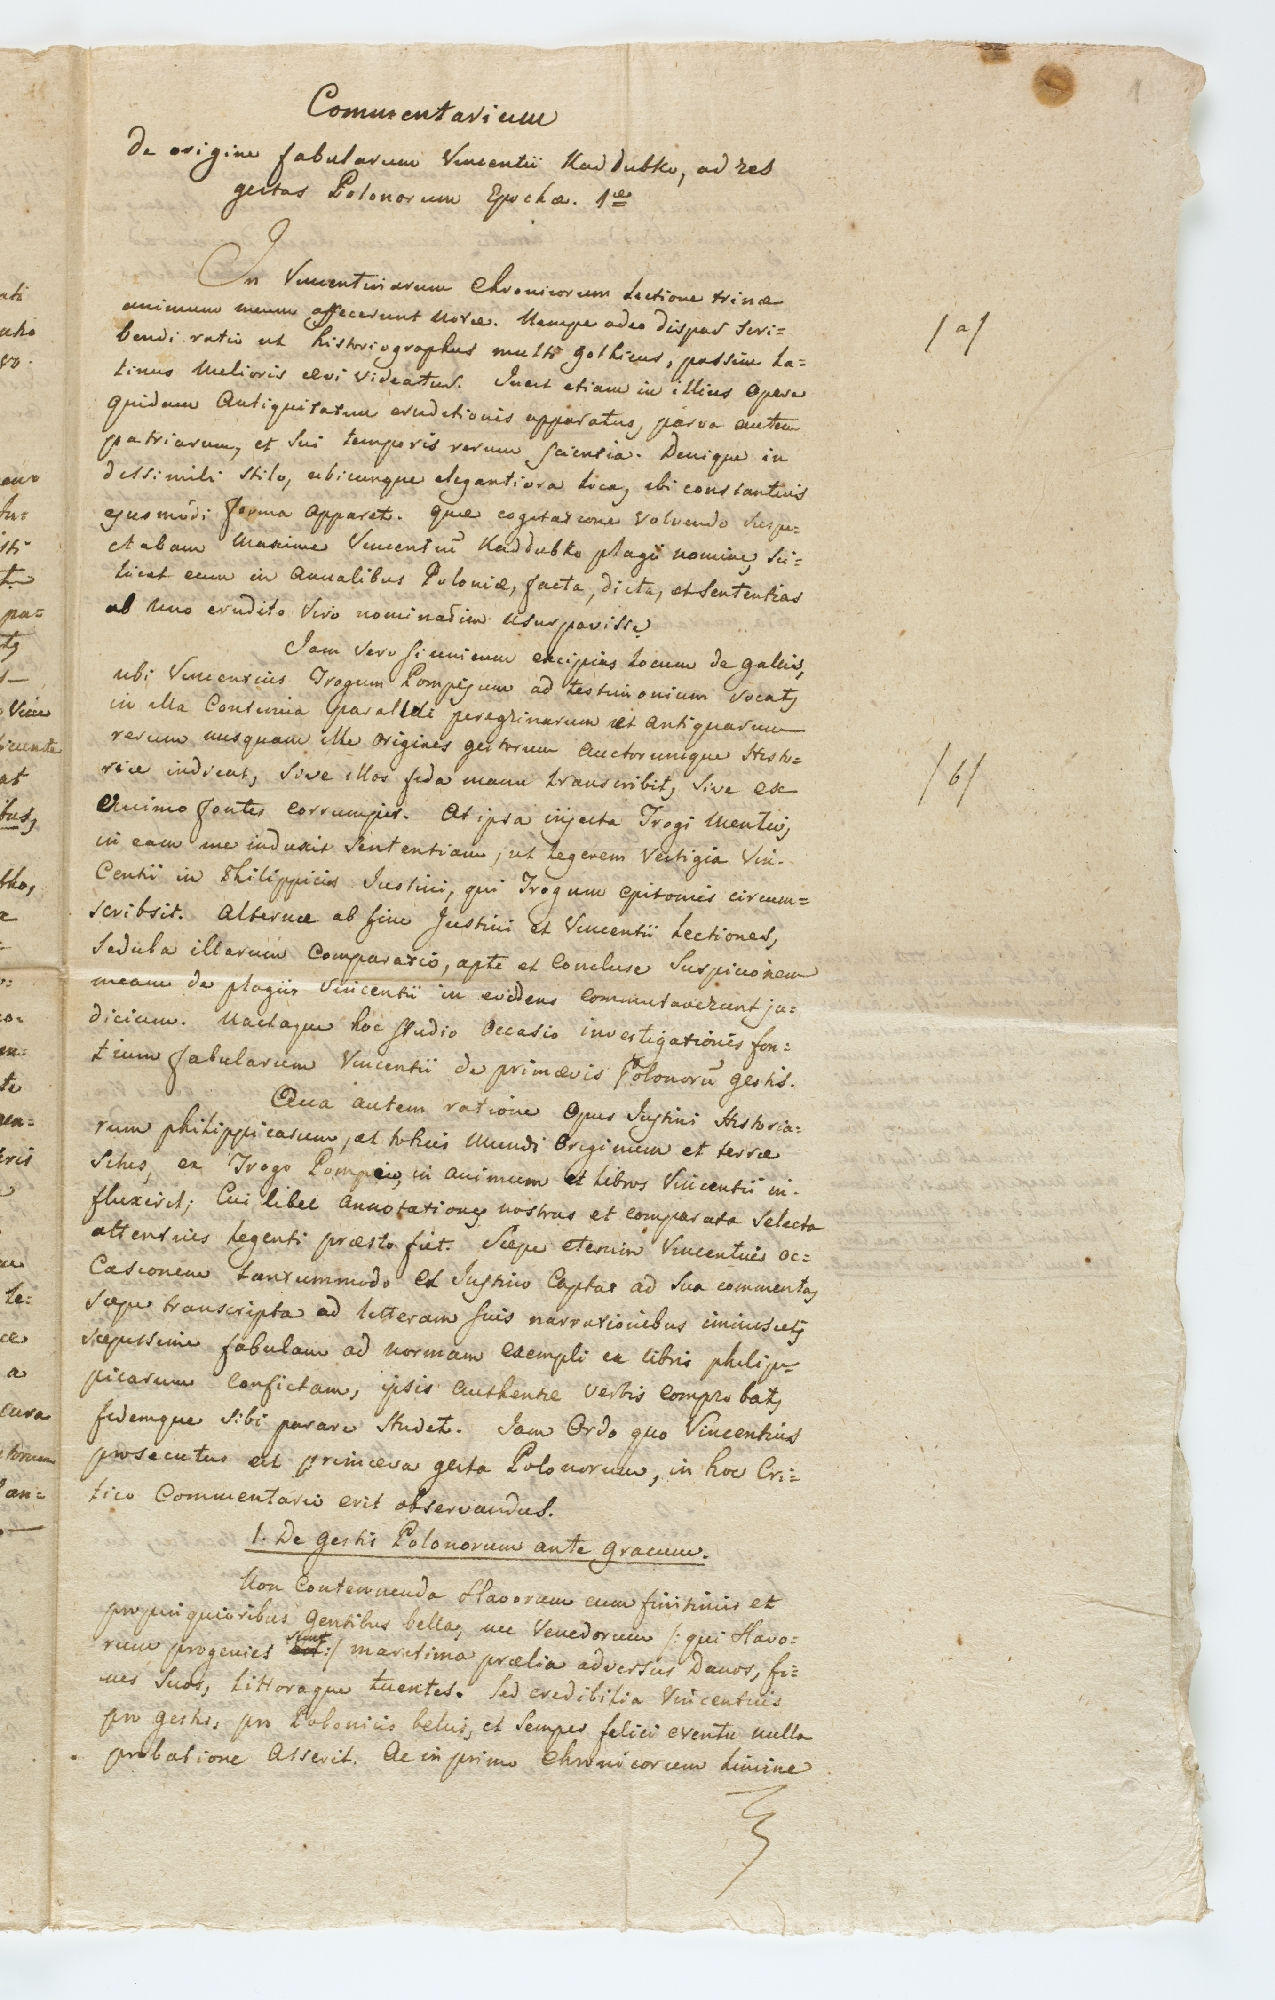 1
Commentarium
De origine fabularum Vincentii Kaddubko, ad res
gestas Polonorum Epochæ. 1æ
In Vincentinarum Chronicorum Lectione trinæ
animum meum affecerunt Noræ. Nempe adeo dispar Scri=
bendi ratio ut historiographus multis gothicus, passim La=
tinus Melioris ævi Videatur. Inest etiam in illius Opere
quidam Antiquitatum eruditionis apparatus, parva autem
patriarum, et Sui temporis rerum scientia. Denique in
dissimili Stilo, ubicunque elegantiora Loca, ibi constantius
ejusmodi forma apparet. Quæ cogitatione volvendo Suspe=
ctabam Maxime Vincentiū Kaddubko plagii nomine, Sci=
licet eum in Annalibus Poloniæ, facta, dicta, et Sententias
ab Uno erudito Viro nominatim Usurpavisse.
Jam vero si unicum excipias Locum de gallis,
ubi Vincentius Trogum Pompejum ad testimonium vocat,
in illa Continua paralleli peregrinarum et antiquarum
rerum nusquam ille Origines gestorum Auctorumque Histo=
riæ indicat, Sive illos fida manu transcribit, Sive ex
Animo fontes corrumpit. At ipsa injecta Trogi Mentio,
in eam me induxit Sententiam, ut Legerem Vestigia Vin=
centii in Philippicis Justini, qui Trogum epitomis circum=
scribsit. Alternæ ab fine Justini et Vincentii Lectiones,
Sedula illarum Comparatio, apte et Concluse Suspicionem
meam de plagiis Vincentii in evidens commutaverunt ju=
dicium. Nactaque hoc studio Occasio investigationis fon=
tium fabularum Vincentii de primævis Polonorū gestis.
Qua autem ratione Opus Justini Historia=
rum philippicarum, et totius Mundi Originum et terræ
Situs, ex Trogo Pompeio, in animum et Libros Vincentii in=
fluxerit; Cui libet Annotationes nostras et comparata Selecta
attentius Legenti præsto fiet. Sæpe etenim Vincentius oc=
casionem tantummodo ex Justino Captat ad Sua commenta,
sæpe transcripta ad litteram suis narrationibus immiscet,
sæpissime fabulam ad normam exempli ex libris philip=
picarum confictam, ipsis Authenticæ verbis comprobat,
fidemque Sibi parare Studet. Jam Ordo quo Vincentius
prosecutus est primæva gesta Polonorum, in hoc Cri=
tico Commentario erit observandus.
1. De gestis Polonorum ante gracum.
Non Contemnenda Slavorum cum finitimis et
propinquioribus Gentibus bella, nec Venedorum /: qui Slavo=
rum progenies sunt :/ maritima prælia adversus Danos, fi=
nes Suos, Littoraque tuentes. Sed credibilia Vincentius
pro gestis, pro Polonicis bellis, et Semper felici eventu nulla
probatione Asserit. Ac in primo Chronicorum Limine
/a/
/b/